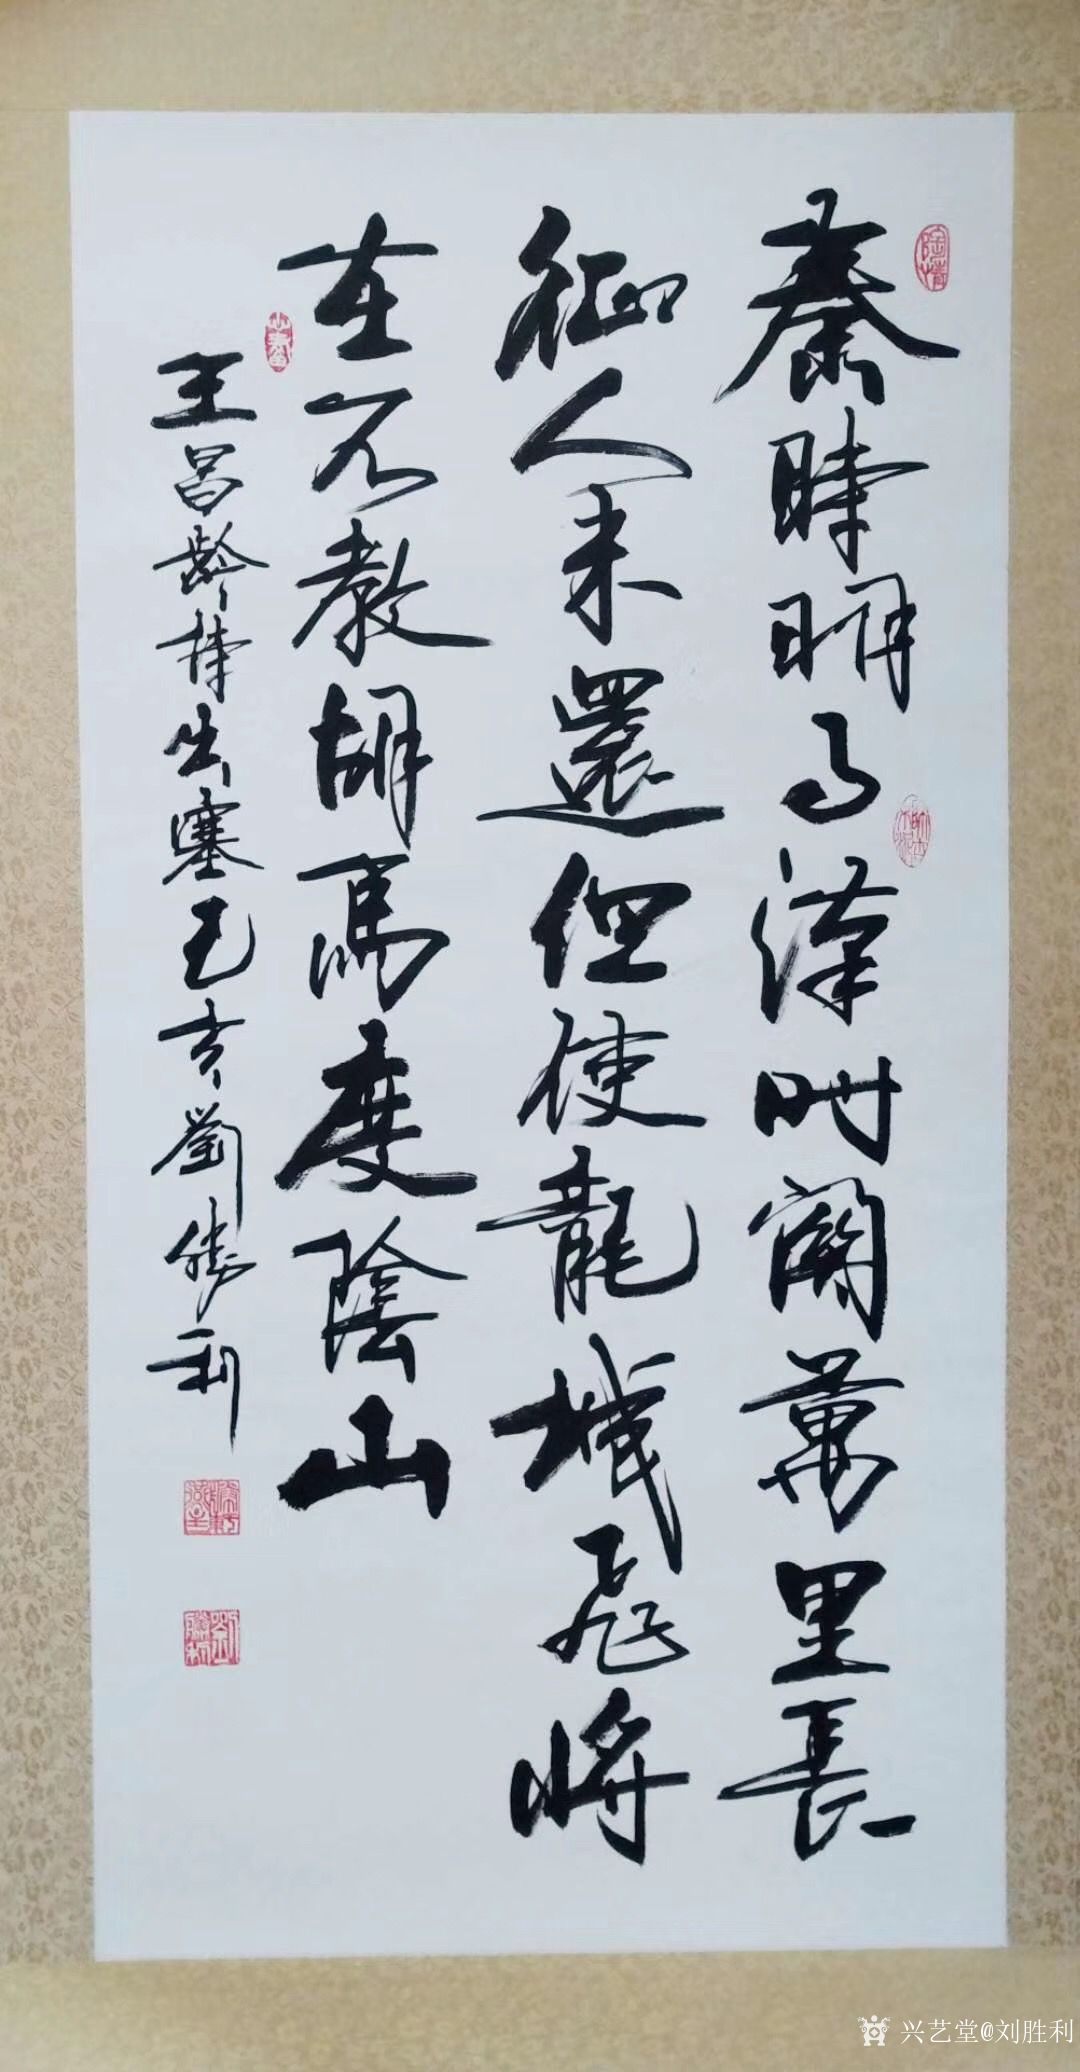 秦時明月漢時關萬里長
征人未還但使龍城飛將
在不教胡馬度陰山
王昌齡詩出塞己亥劉勝利
兴艺堂@刘胜利